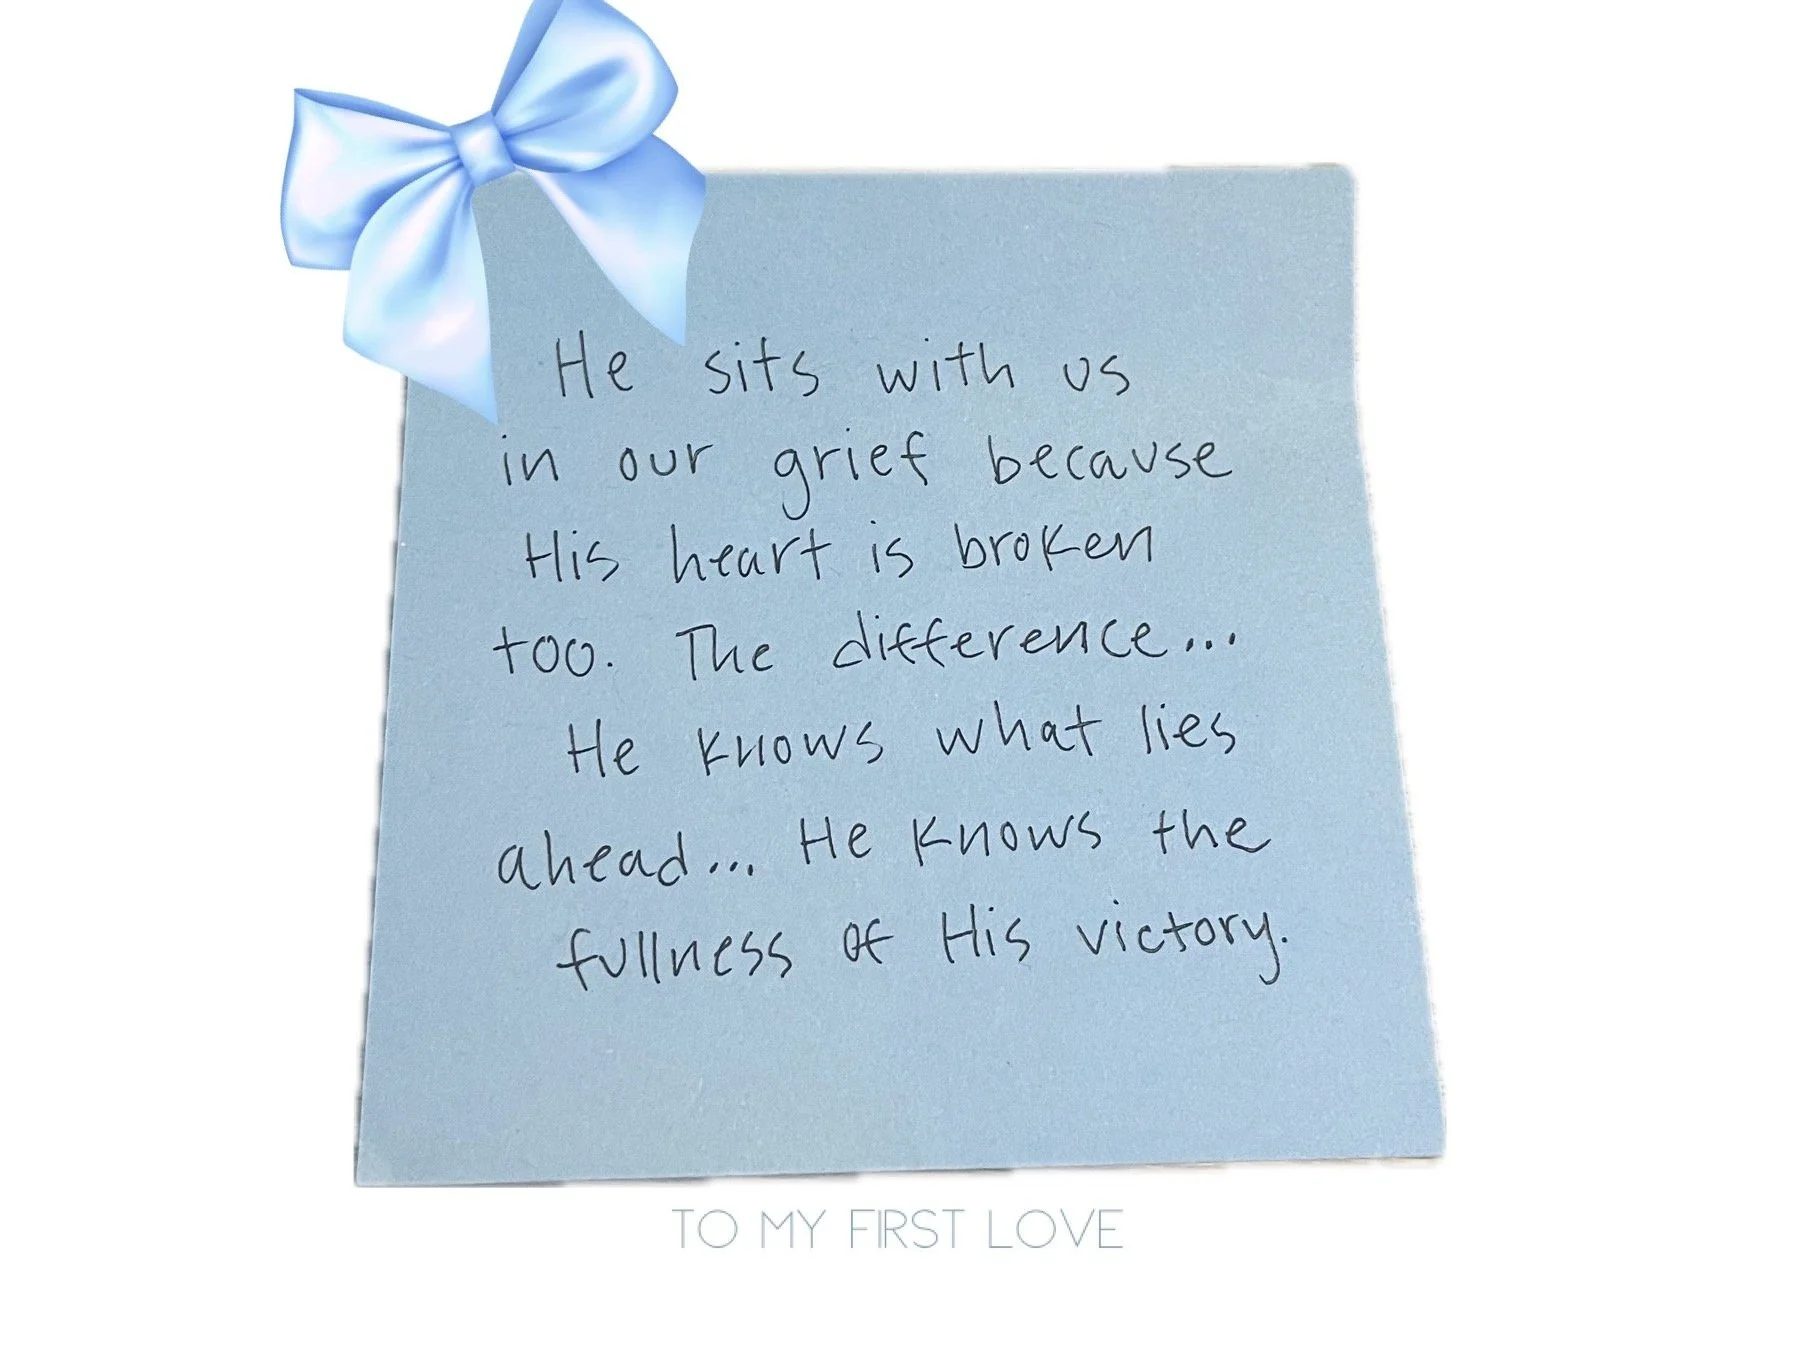 He sits with us
in our grief because
His heart is broken
too. The difference...
He knows what lies
ahead... He knows the
fullness of His victory.
TO MY FIRST LOVE